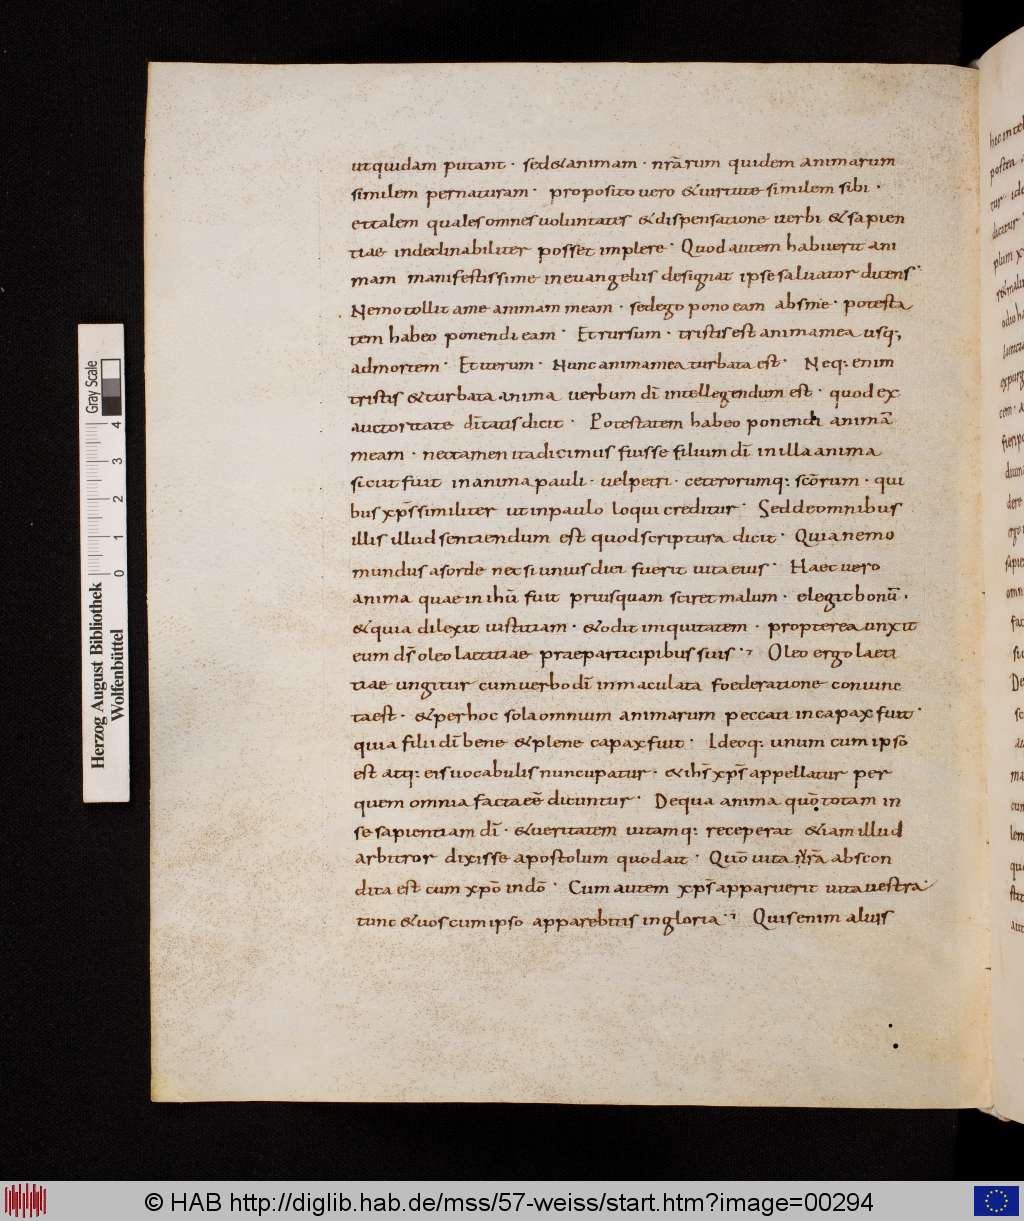 ut quidam putant · sed & animam · nr̄arum quidem animarum
similem per naturam · proposito uero & uirtute similem sibi ·
et talem quales omnes uoluntates & dispensatione uerbi & sapien
tiae indeclinabiliter posset implere · Quod autem habuerit ani
mam manifestissime in euangeliis designat ipse saluator dicens ·
Nemo tollit a me animam meam · sed ego pono eam abs me · potesta
tem habeo ponendi eam · Et rursum · tristis est anima mea usq;
ad mortem · Et iterum · Nunc anima mea turbata est · Neq: enim
tristis & turbata anima uerbum dī intellegendum est · quod ex
auctoritate dītatis dicit · Potestatem habeo ponendi animā
meam · nec tamen ita dicimus fuisse filium dī in illa anima
sicut fuit in anima pauli · uel petri · ceterorumq: scōrum · qui
bus xp̄s similiter ut in paulo loqui creditur · Sed de omnibus
illis illud sentiendum est quod scriptura dicit · Quia nemo
mundus a sorde nec si unius diei fuerit uita eius · Haec uero
anima quae in ihū fuit priusquam sciret malum · elegit bonū ·
& quia dilexit iustitiam · & odit iniquitatem · propterea unxit
eum dī̄s oleo laetitiae prae participibus suis · Oleo ergo laeti
tiae ungitur cum uerbo dī inmaculata foederatione coniunc
ta est · & per hoc sola omnium animarum peccati incapax fuit ·
quia filii dī bene & plene capax fuit · Ideoq: unum cum ipsō
est atq: eis uocabulis nuncupatur · & ihs̄ xp̄s appellatur per
quem omnia facta eē dicuntur · De qua anima quō totam in
se sapientiam dī · & ueritatem uitamq: receperat & iam illud
arbitror dixisse apostolum quod ait · Quō uita nr̄a abscon
dita est cum xp̄o in dō · Cum autem xp̄s apparuerit uita uestra ·
tunc & uos cum ipso apparebitis in gloria · Quis enim aluis
Gray Scale
4
3
2
1
0
Herzog August Bibliothek
Wolfenbüttel
© HAB http://diglib.hab.de/mss/57-weiss/start.htm?image=00294